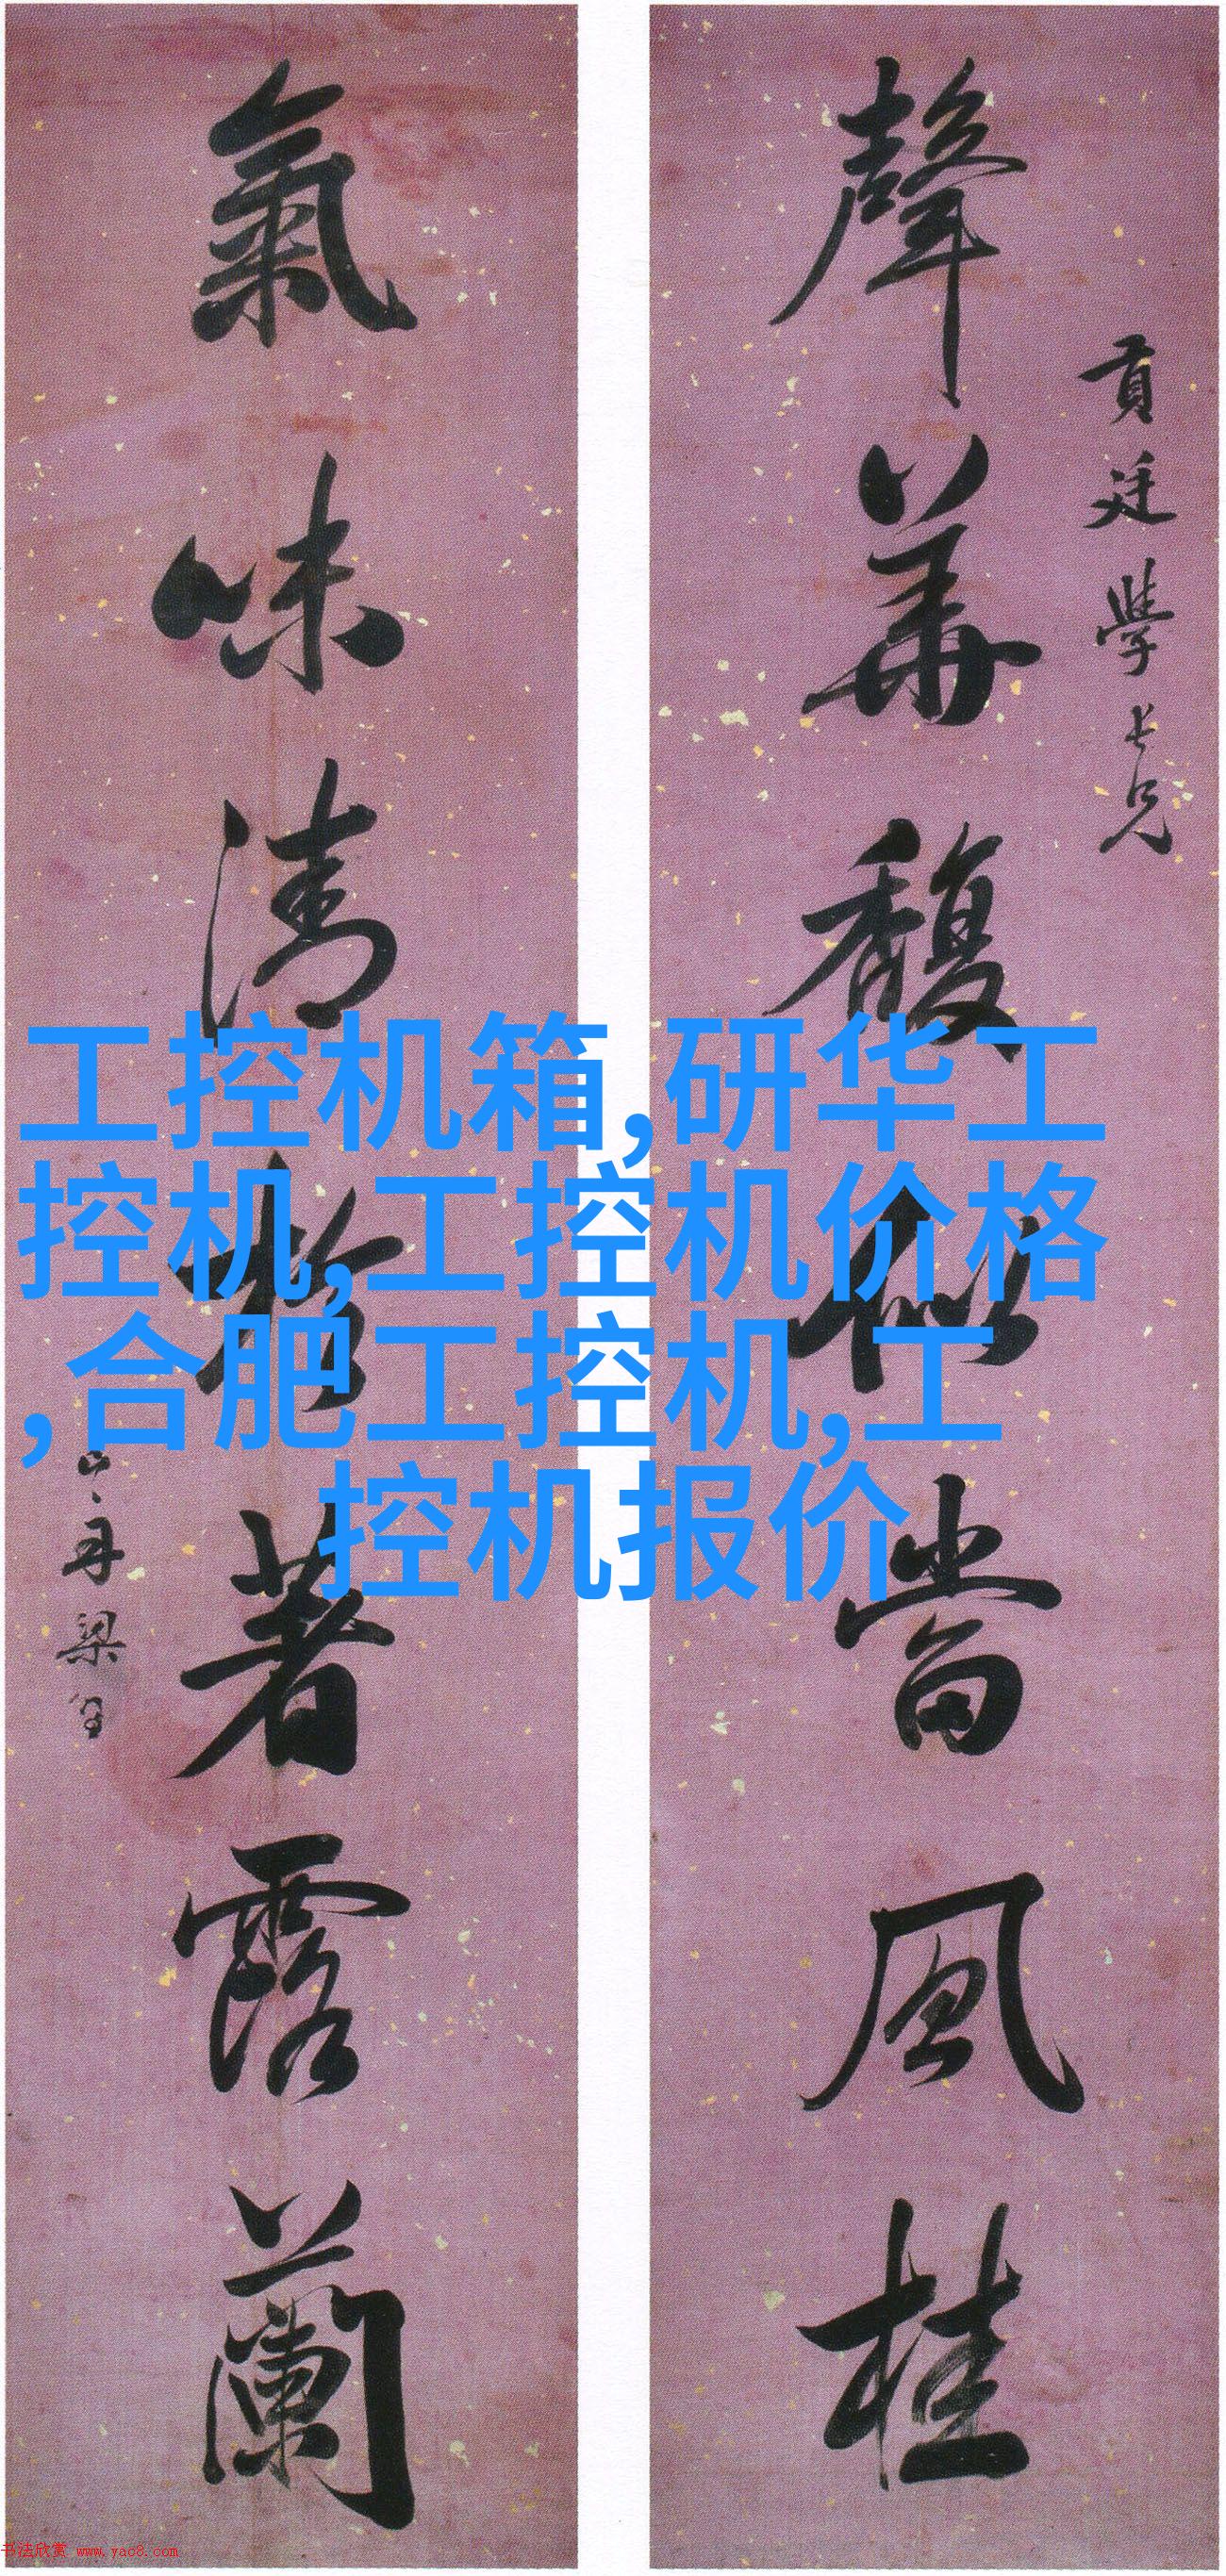 聲華馥似當風桂
貢廷學長兄
氣味清於著露蘭
山舟梁同書
工控机箱,研华工
控机,工控机价格
,合肥工控机,工
控机报价
书法欣赏 www.yac8.com